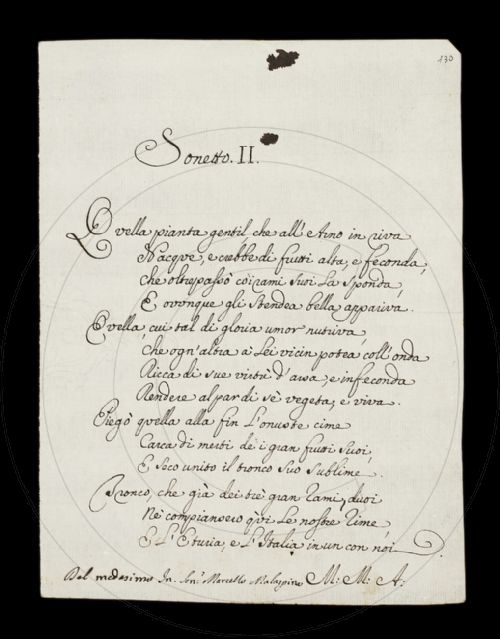 130
Sonetto. II.
Qvella pianta gentil che all'Arno in riva
Nacqve, e crebbe di frutti alta, e feconda,
Che oltrepassò coi rami suoi la sponda,
E ovonqve gli stendea bella appariva.
Qvella, cui tal di gloria umor nutriva,
Che ogn'altra a lei vicin potea coll'onda
Ricca di sue virtù d'arsa, e infeconda
Rendere al par di sè vegeta, e viva.
Piegò qvella alla fin l'onuste cime
Carca di merti de i gran frutti suoi,
E seco unito il tronco suo sublime.
Tronco, che già dei trè gran rami, duoi
Nè compiansero qvi le nostre rime,
E l'Etruria, e l'Italia in un con noi.
Del medesimo Sen.r Marcello Malaspina M: M: A: